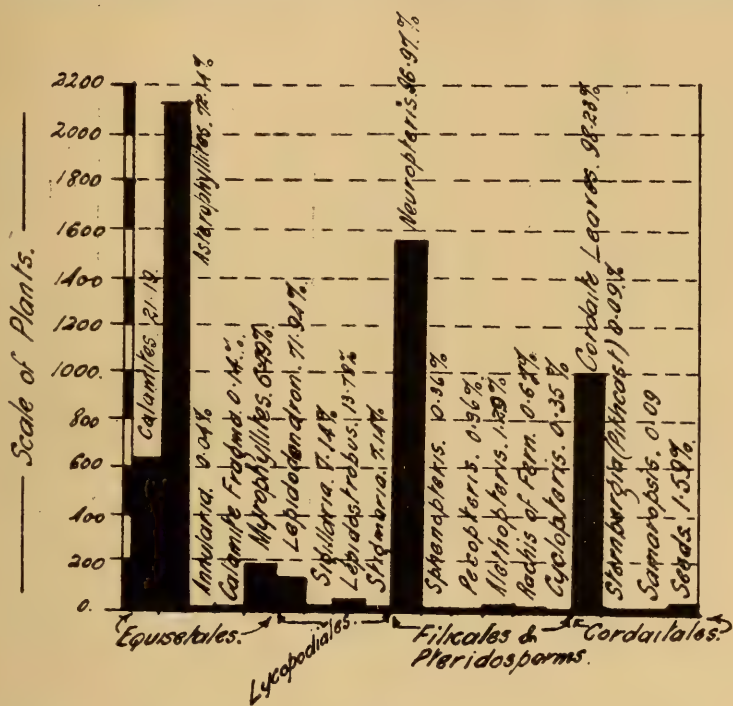 Scale of Plants.
2200
2000
1800
1600
1400
1200
1000
800
600
400
200
0.
Calamites 21.19
Asterophyllites. 72.14%
Annularia. 0.04%
Calamite Fragmd. 0.14%
Myrophyllites. 6.49%
Lepidodendron. 71.94%
Sigillaria. 7.14%
Lepidostrobus. 13.78%
Stigmaria. 7.14%
Neuropteris. 96.97%
Sphenopteris. 0.36%
Pecopteris. 0.96%
Alethopteris.
Rachis of Fern. 0.62%
Cyclopteris. 0.35%
Cordaite Leaves. 98.23%
Sternbergia (Pithcast) 0.09%
Samaropsis. 0.09
Seeds. 1.59%
Equisetales.
Lycopodiales.
Filicales &
Pteridosperms.
Cordaitales.